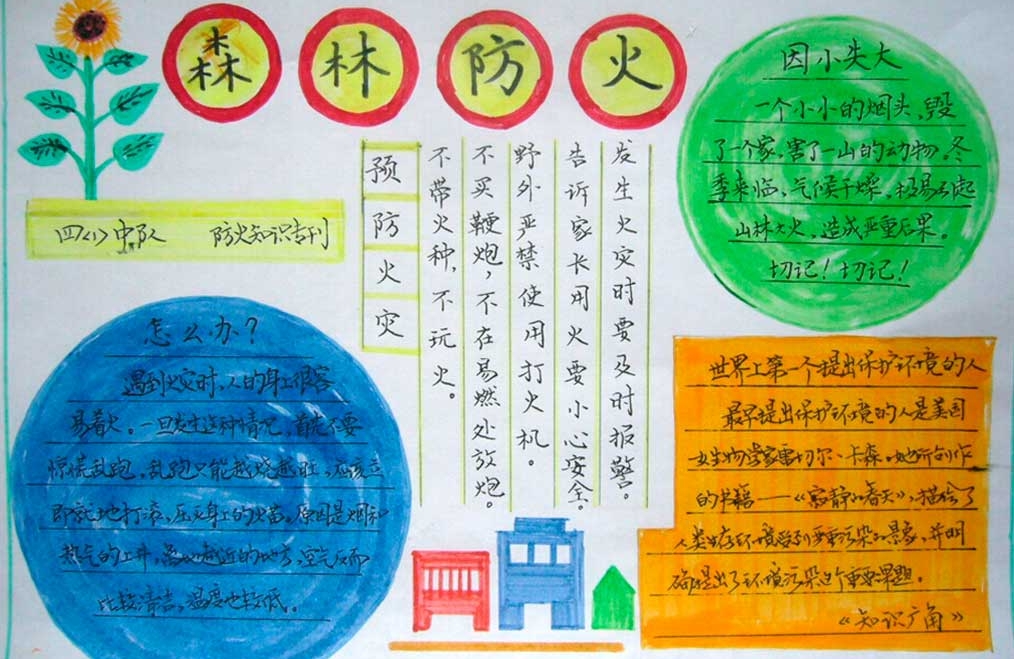 森林防火
四(1)中队 防火知识专刊
预防火灾
不带火种,不玩火。
不买鞭炮,不在易燃处放炮。
野外严禁使用打火机。
告诉家长用火要小心安全。
发生火灾时要及时报警。
因小失大
一个小小的烟头,毁
了一个家,害了一山的动物。冬
季来临,气候干燥,极易引起
山林大火,造成严重后果。
切记!切记!
怎么办?
遇到火灾时,人的身上很容
易着火。一旦发生这种情况,首先不要
惊慌乱跑,乱跑只能越烧越旺,应该立
即就地打滚,压灭身上的火苗。原因是烟和
热气的上升,离地越近的地方,空气反而
比较清洁,温度也较低。
世界上第一个提出保护环境的人
最早提出保护环境的人是美国
女生物学家蕾切尔·卡森。她所创作
的书籍——《寂静的春天》,描绘了
人类生存环境受到严重污染的景象,并明
确提出了环境污染这个重要课题。
《知识广角》